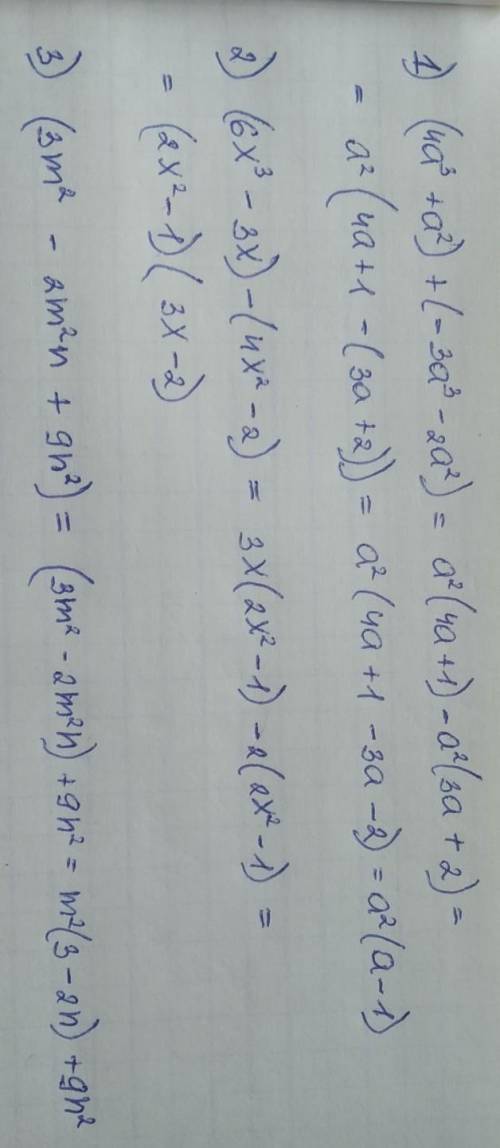 1) (4a³ + a²) + (-3a³ - 2a²) = a²(4a+1) - a²(3a+2) =
= a²(4a+1 - (3a+2)) = a²(4a+1 - 3a - 2) = a²(a-1)
2) (6x³ - 3x) - (4x² - 2) = 3x(2x² - 1) - 2(2x² - 1) =
= (2x² - 1)(3x - 2)
3) (3m² - 2m²n + 9n²) = (3m² - 2m²n) + 9n² = m²(3 - 2n) + 9n²